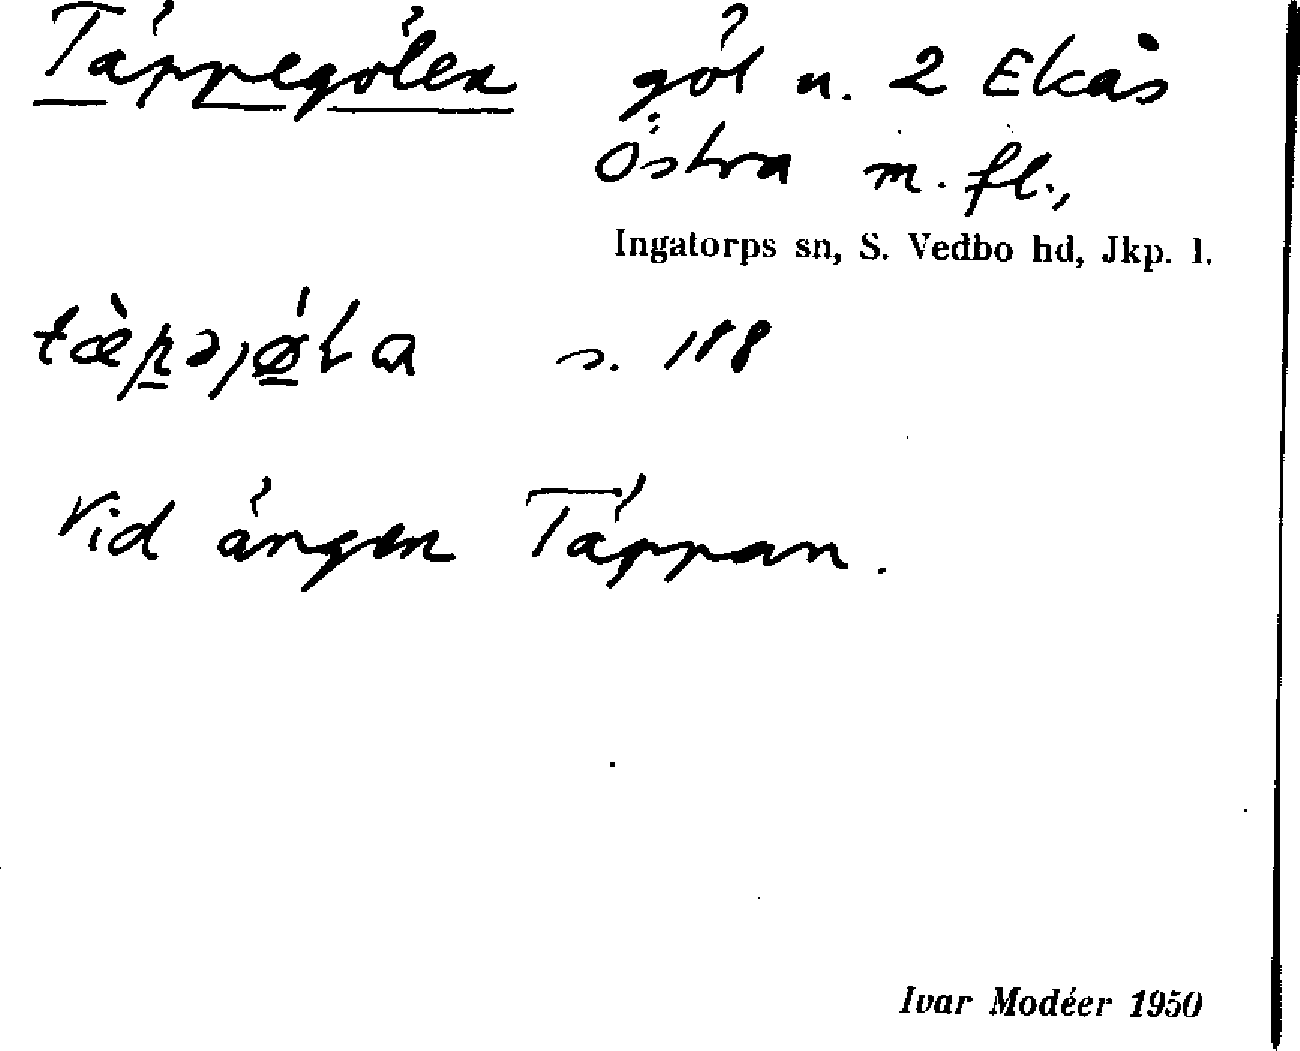 Täppegölen göl n. 2 Ekås
Östra m. fl.,
Ingatorps sn, S. Vedbo hd, Jkp. l.
s. 188
Vid ängen Täppan.
Ivar Modéer 1950